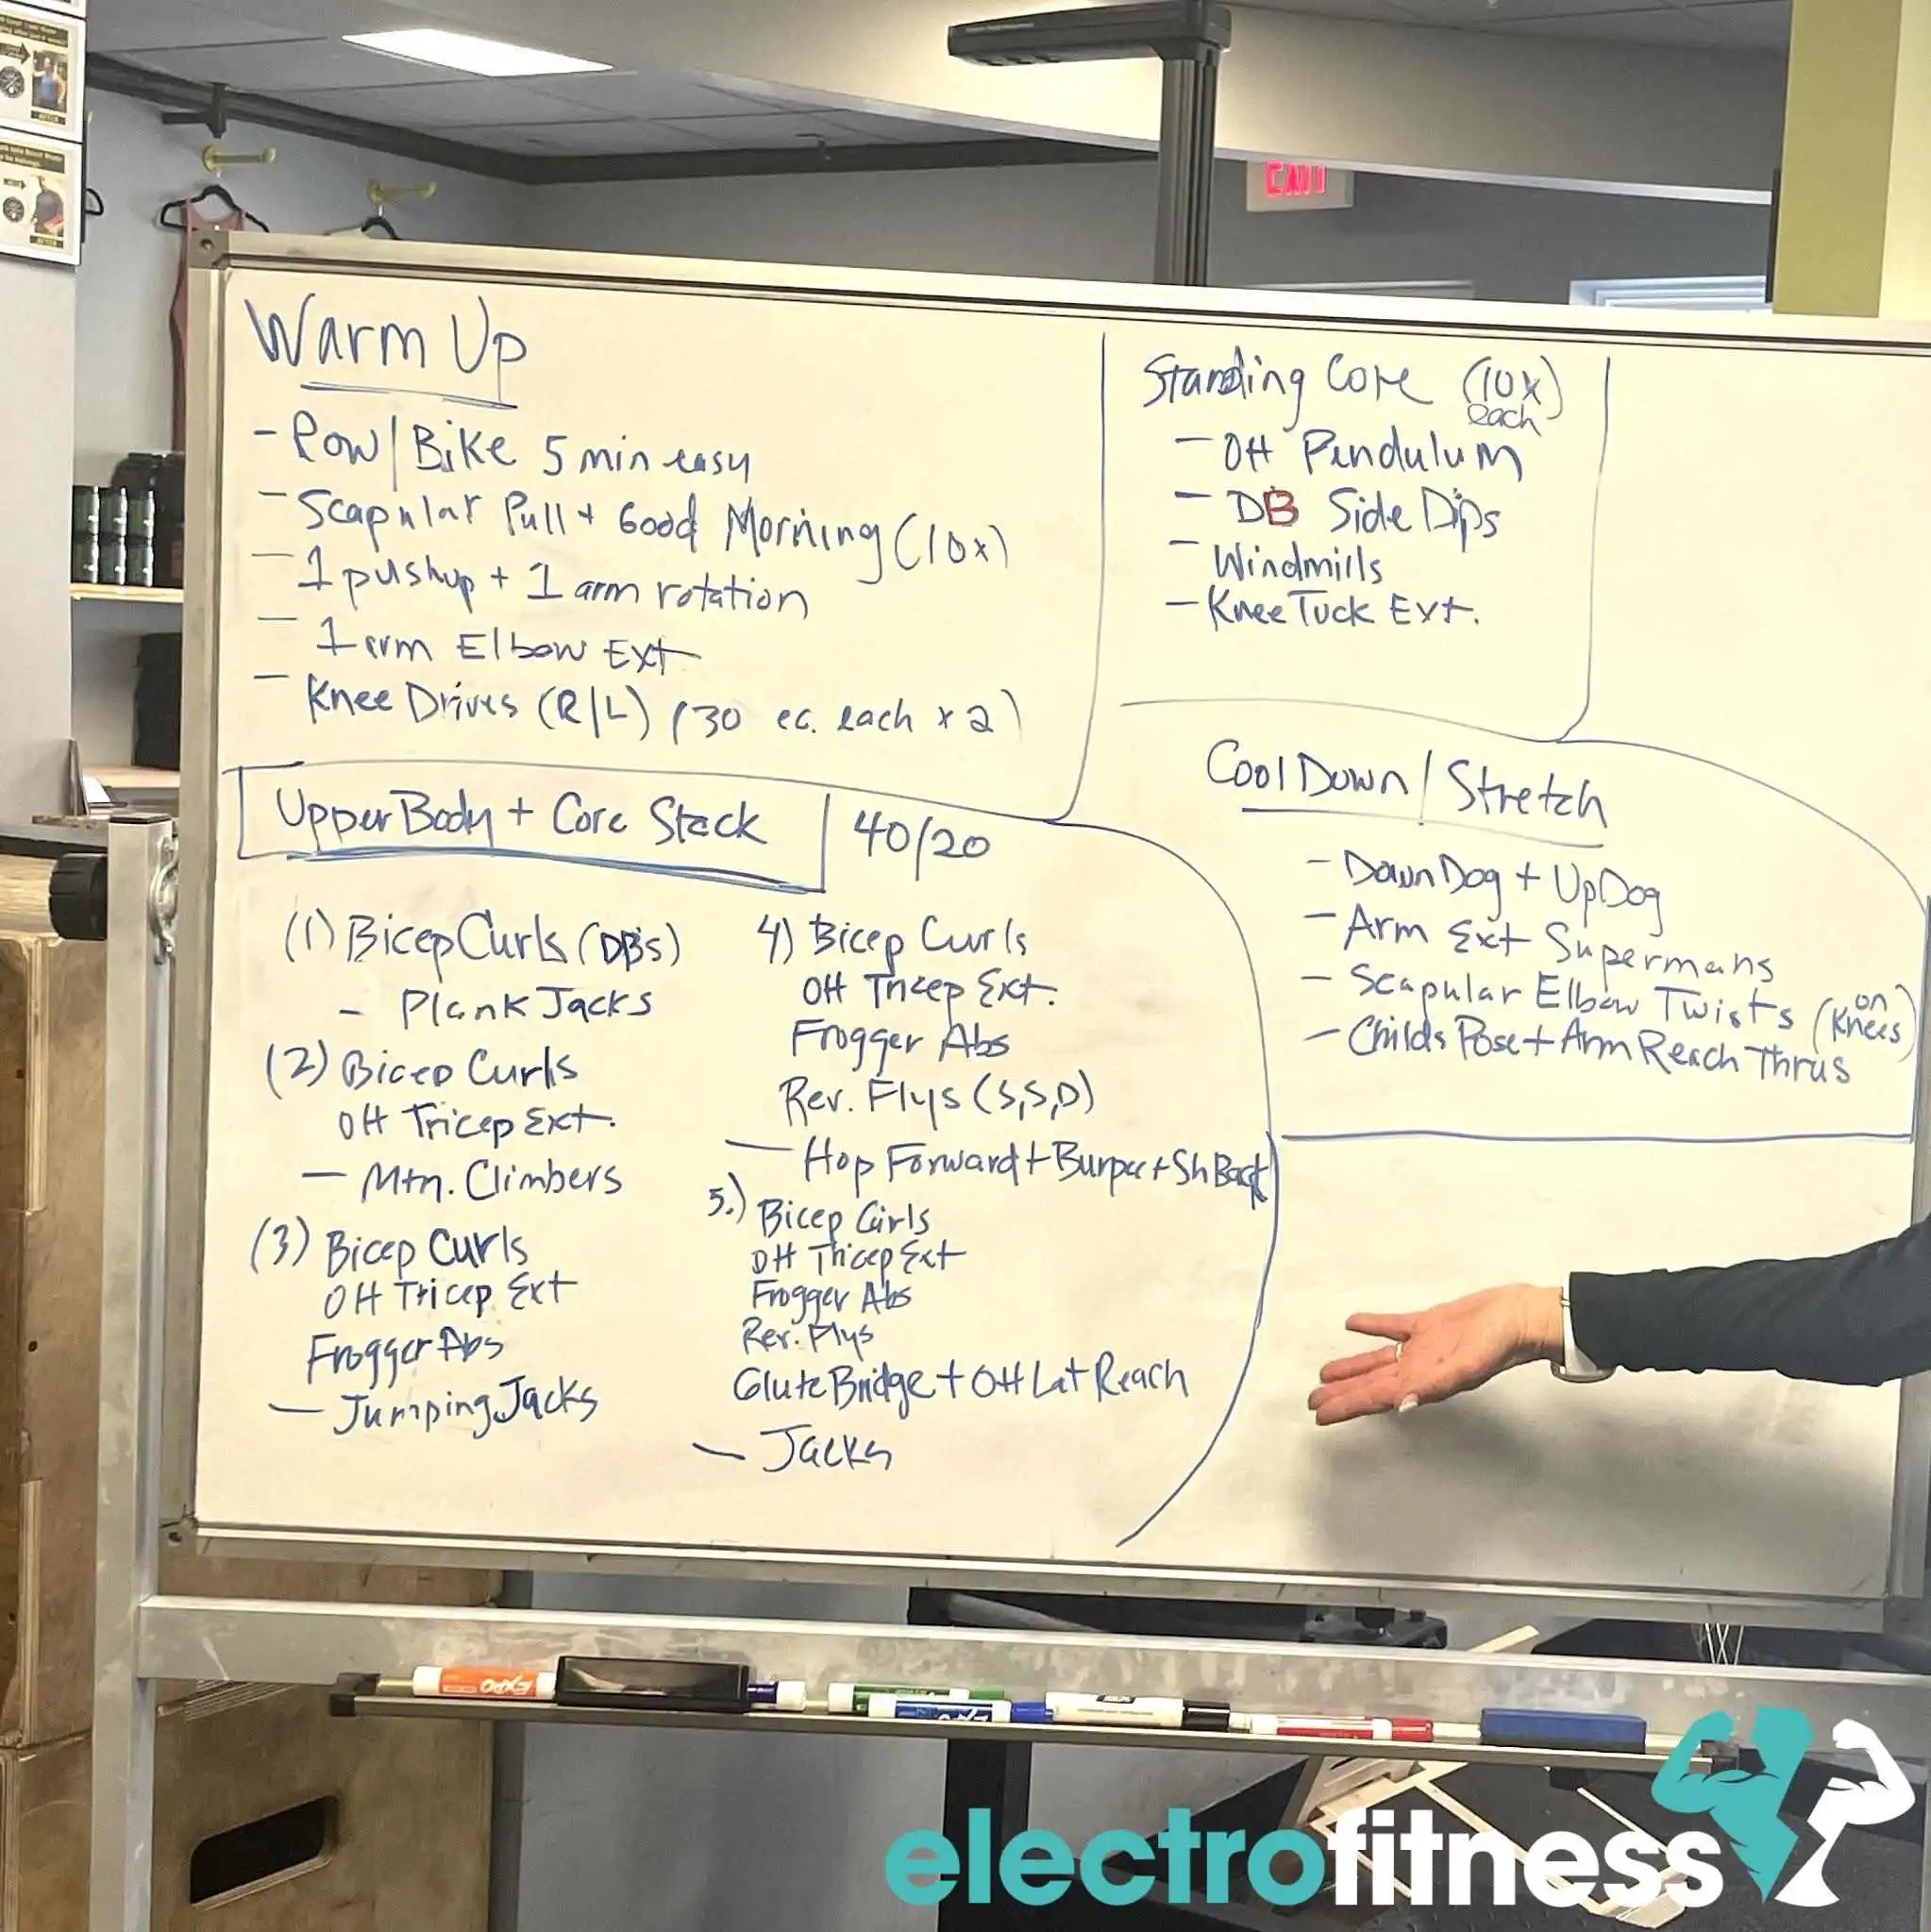 Warm Up
- Row/Bike 5 min easy
- Scapular Pull + Good Morning (10x)
- 1 pushup + 1 arm rotation
- 1 arm Elbow Ext
- Knee Drives (R/L) (30 ec. each x 2)
Upper Body + Core Stack 40/20
(1) Bicep Curls (DB's)
- Plank Jacks
(2) Bicep Curls
OH Tricep Ext.
- Mtn. Climbers
(3) Bicep Curls
OH Tricep Ext
Frogger Abs
- Jumping Jacks
4) Bicep Curls
OH Tricep Ext.
Frogger Abs
Rev. Flys (S,S,D)
- Hop Forward + Burpee + Sh Back
5.) Bicep Curls
OH Tricep Ext
Frogger Abs
Rev. Flys
Glute Bridge + OH Lat Reach
- Jacks
Standing Core (10x)
each
- OH Pendulum
- DB Side Dips
- Windmills
- Knee Tuck Ext.
Cool Down / Stretch
- Down Dog + Up Dog
- Arm Ext Supermans
- Scapular Elbow Twists (on Knees)
- Childs Pose + Arm Reach Thrus
EXIT
EXPO
electrofitness